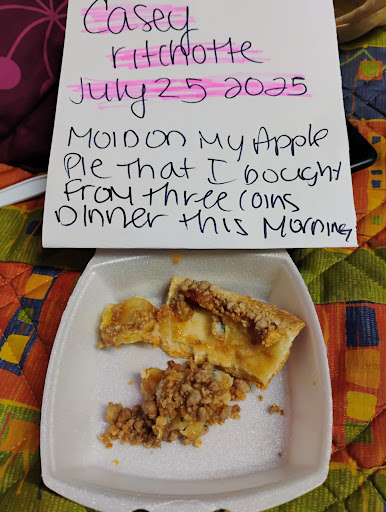 Casey
ritchotte
July 25 2025
Mold on My Apple
Pie That I bought
From three coins
Dinner this Morning